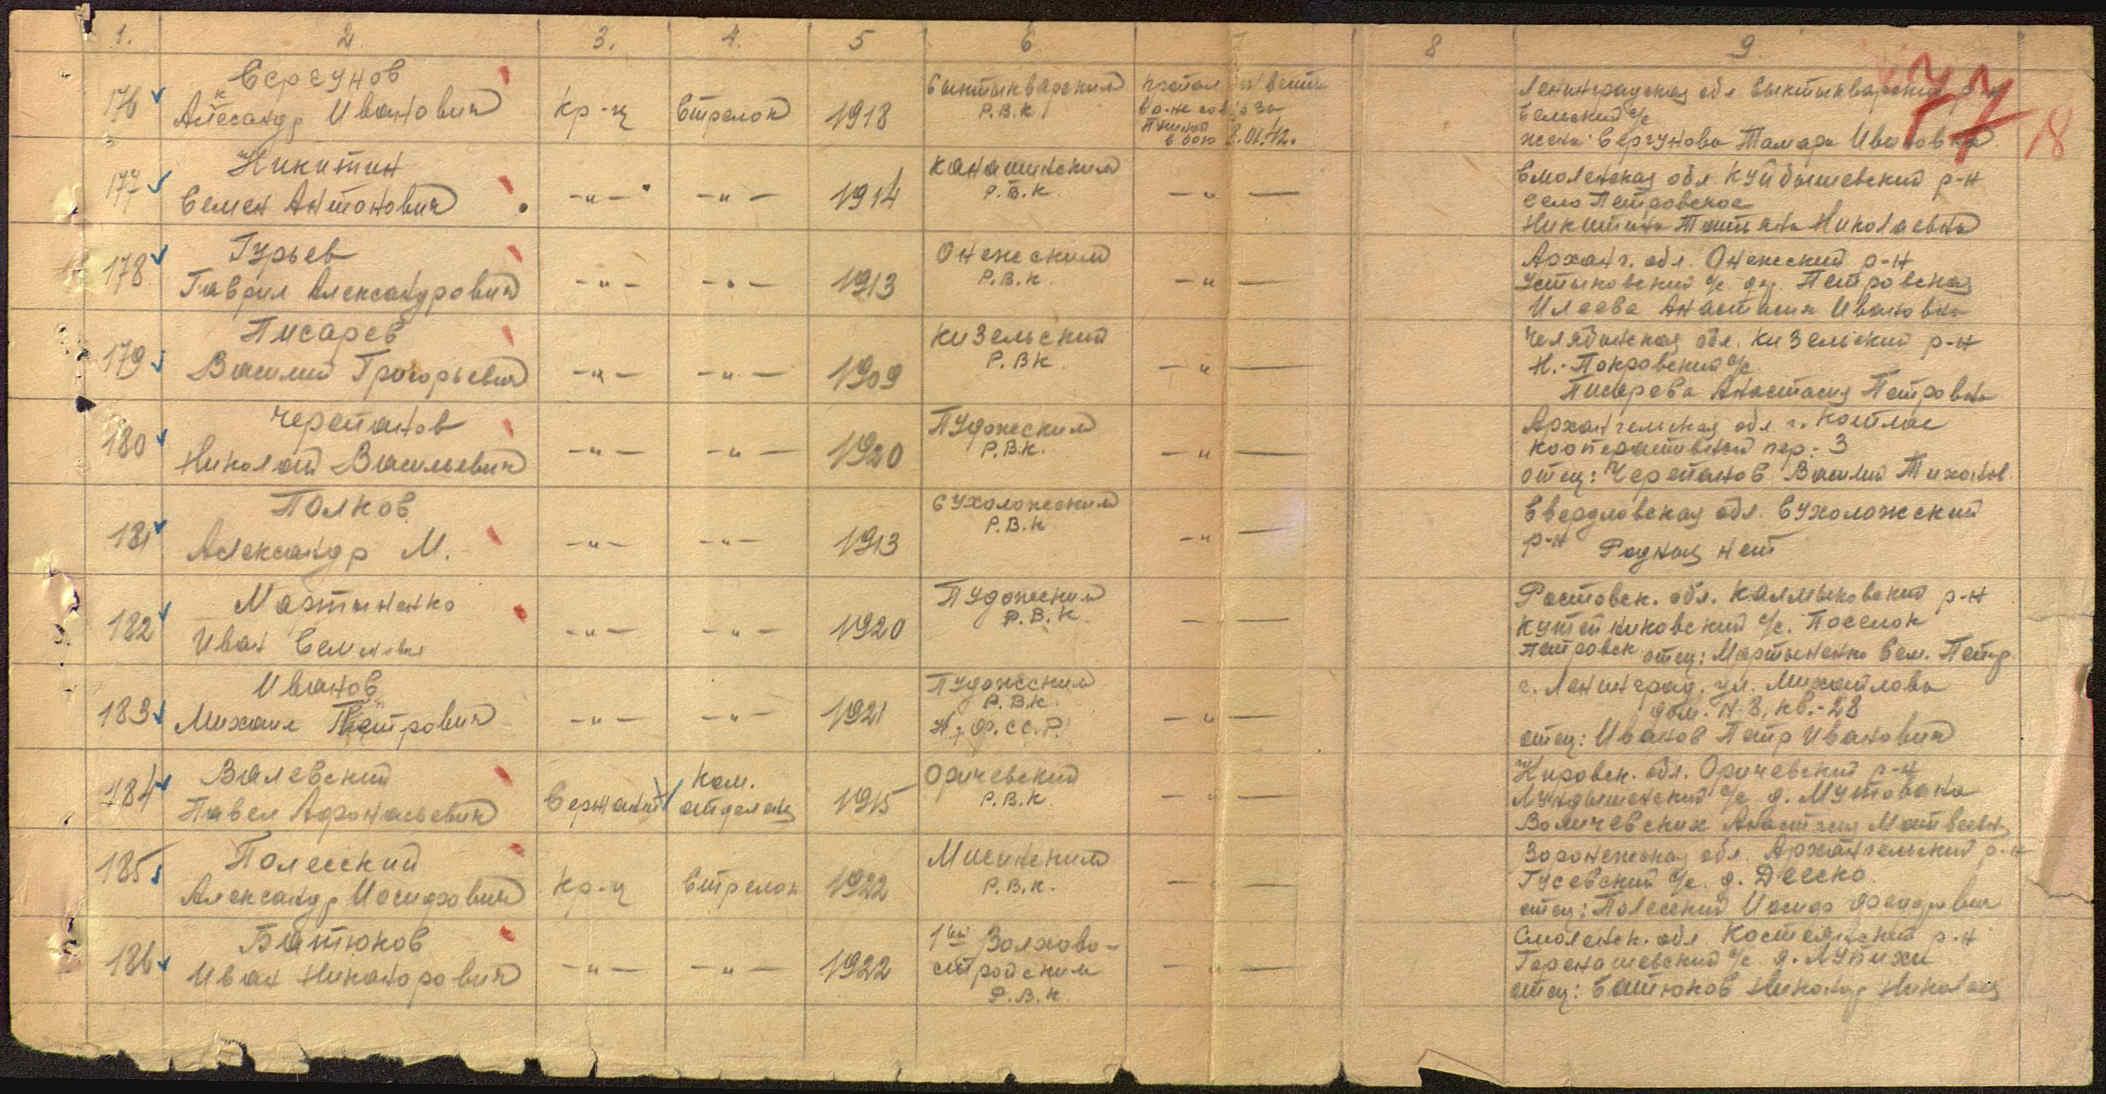 1. 2. 3. 4. 5 6 7 8 9.
77
18
176 Сергунов
Александр Иванович
кр-ц Стрелок 1918
Сыктывкарским
Р.В.К.
пропал без вести
8.01.42.
Ленинградская обл Сыктывкарский р-н
Сельский с/с
жена: Сергунова Тамара Ивановна
177 Никитин
Семен Антонович
-"- -"- 1914
Канашинским
Р.В.К.
-"-
Смоленская обл Куйбышевский р-н
село Петровское
Никитина Татьяна Николаевна
178 Гурьев
Гаврил Александрович
-"- -"- 1913
Онежским
Р.В.К.
-"-
Арханг. обл. Онежский р-н
с/с дер. Петровская
Илеева Анастасия Ивановна
179 Писарев
Василий Григорьевич
-"- -"- 1909
Кизельский
Р.В.К.
-"-
Челябинская обл. Кизельский р-н
Н.-Покровский с/с
Писарева Анастасия Петровна
180 Черепанов
Николай Васильевич
-"- -"- 1920
Пудожским
Р.В.К.
-"-
Архангельская обл г. Котлас
Кооперативный пер. 3
отец: Черепанов Василий Тихонов.
181 Полков
Александр М.
-"- -"- 1913
Сухоложским
Р.В.К.
-"-
Свердловская обл. Сухоложский
р-н Родных нет
182 Мартыненко
Иван Семенович
-"- -"- 1920
Пудожским
Р.В.К.
-"-
Ростовск. обл. Калмыковский р-н
Кутейниковский с/с. Поселок
Петровск отец: Мартыненко Сем. Петр.
183 Иванов
Михаил Петрович
-"- -"- 1921
Пудожским
Р.В.К.
К.Ф.ССР
-"-
г. Ленинград. ул. Михайлова
дом. № 3, кв.-28
отец: Иванов Петр Иванович
184 Валевский
Павел Афонасьевич
Сержант Ком.
отделен. 1915
Оричевский
Р.В.К.
-"-
Кировск. обл. Оричевский р-н
с/с д.
Анастасия Матвеевн.
185 Полесский
Александр Иосифович
кр-ц Стрелок 1922
Р.В.К.
-"-
Воронежская обл. Архангельский р-н
Гусевский с/с. д.
отец: Полесский Иосиф
186 Батюков
Иван Никанорович
-"- -"- 1922
1ый Волхово-
стройским
Р.В.К.
-"-
Смоленск. обл. р-н
с/с д. Лупихи
отец: Батюков Никанор